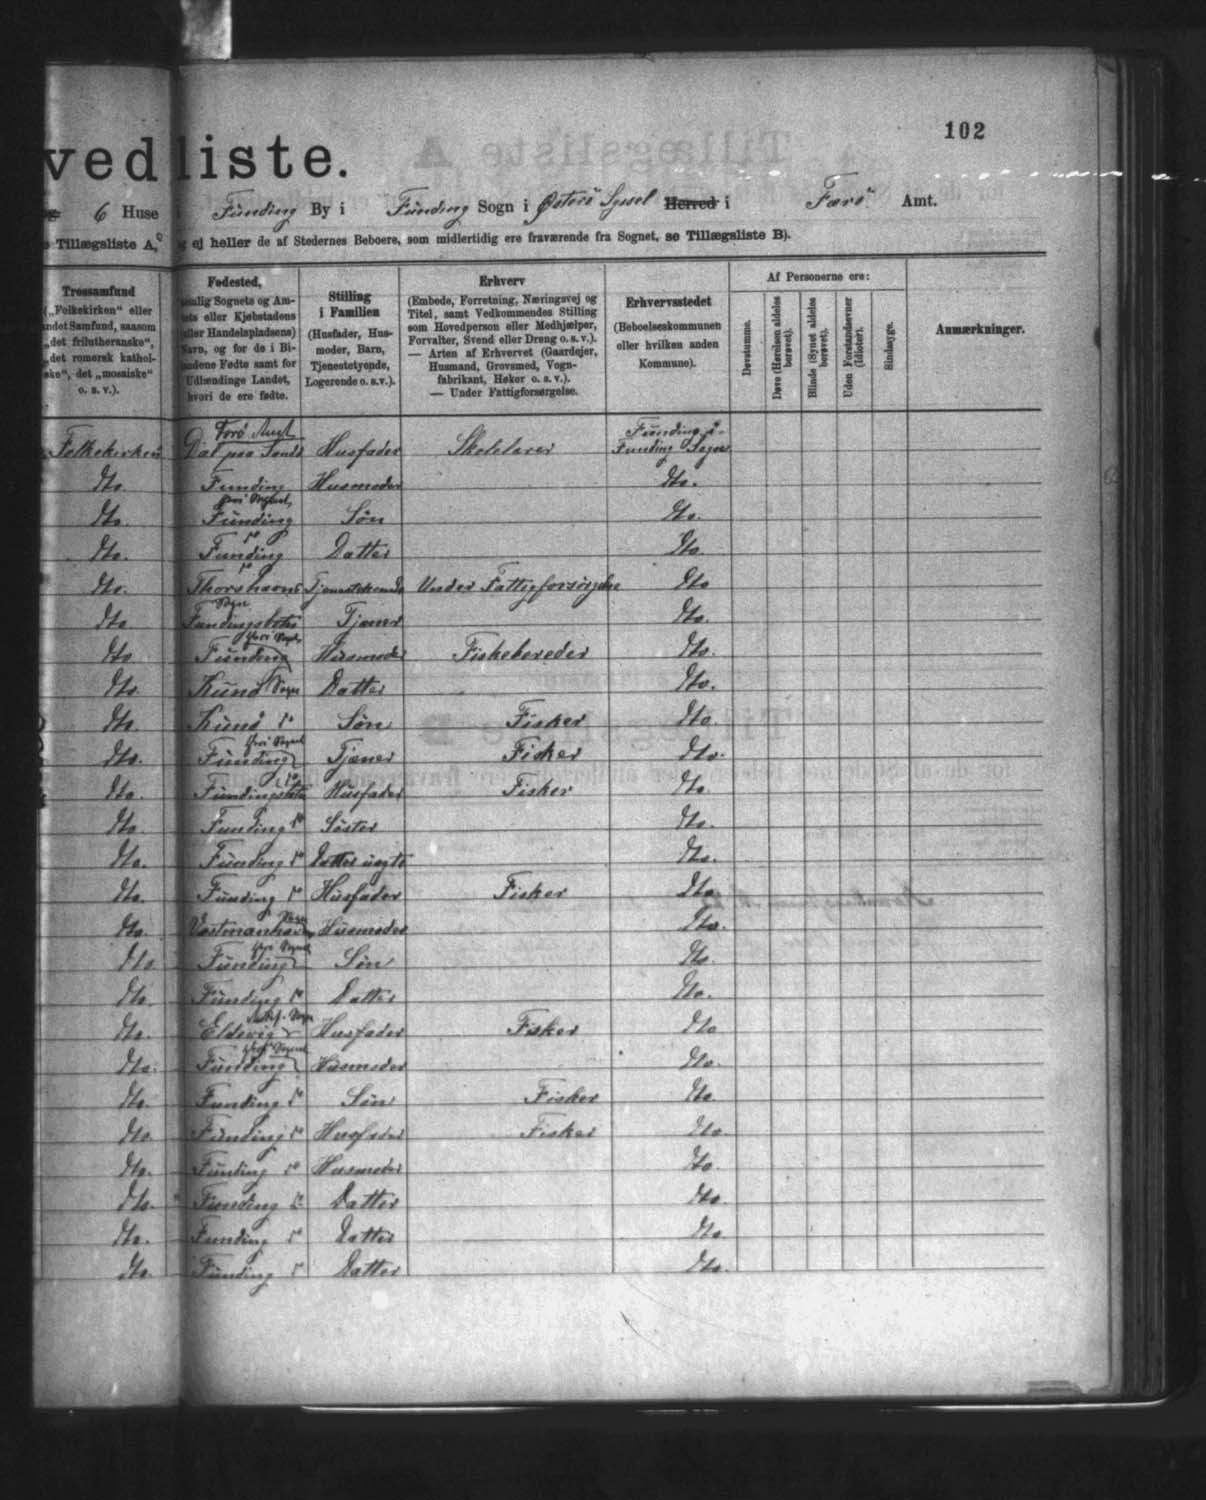 102
vedliste.
6 Huse i Funding By i Funding Sogn i Østerø Syssel Herred i Færø Amt.
Tillægsliste A, og ej heller de af Stedernes Beboere, som midlertidig ere fraværende fra Sognet, se Tillægsliste B).
Trossamfund
(„Folkekirken" eller
andet Samfund, saasom
„det frilutheranske",
„det romersk kathol-
ske", det „mosaiske"
o. s. v.).
Fødested,
nemlig Sognets og Am-
tets eller Kjøbstadens
(eller Handelspladsens)
Navn, og for de i Bi-
landene Fødte samt for
Udlændinge Landet,
hvori de ere fødte.
Stilling
i Familien
(Husfader, Hus-
moder, Barn,
Tjenestetyende,
Logerende o. s. v.).
Erhverv
(Embede, Forretning, Næringsvej og
Titel, samt Vedkommendes Stilling
som Hovedperson eller Medhjælper,
Forvalter, Svend eller Dreng o. s. v.).
— Arten af Erhvervet (Gaardejer,
Husmand, Grovsmed, Vogn-
fabrikant, Høker o. s. v.).
— Under Fattigforsørgelse.
Erhvervsstedet
(Beboelseskommunen
eller hvilken anden
Kommune).
Af Personerne ere:
Døvstumme.
Døve (Hørelsen aldeles
berøvet).
Blinde (Synet aldeles
berøvet).
Uden Forstandsevner
(Idioter).
Sindssyge.
Anmærkninger.
Færø Amt Funding i
Folkekirken Dal paa Sandø Husfader Skolelærer Funding Sogn
Do. Funding Husmoder Do.
Do. Funding Søn Do.
Do. Funding Datter Do.
Do. Thorshavn Under Fattigforsørgelse Do
Do Fundingsbotn Tjener Do.
Do Funding Husmoder Fiskebereder Do.
Do. Kunø Sogn Datter Do.
Do. Kunø do Søn Fisker Do.
Do. Funding Tjener Fisker Do.
Do. Fundingsbotn Husfader Fisker Do.
Do. Funding do Søster Do.
Do. Funding do Datter uægte Do.
Do. Funding do Husfader Fisker Do
Do. Vestmanhavn Husmoder Do.
Do Funding Søn Do.
Do. Funding do Datter Do.
Do. Eldevig Husfader Fisker Do
Do. Funding Husmoder Do.
Do. Funding do Søn Fisker Do.
Do. Funding do Husfader Fisker Do.
Do. Funding do Husmoder Do.
Do. Funding do Datter Do.
Do. Funding do Datter Do.
Do. Funding do Datter Do.